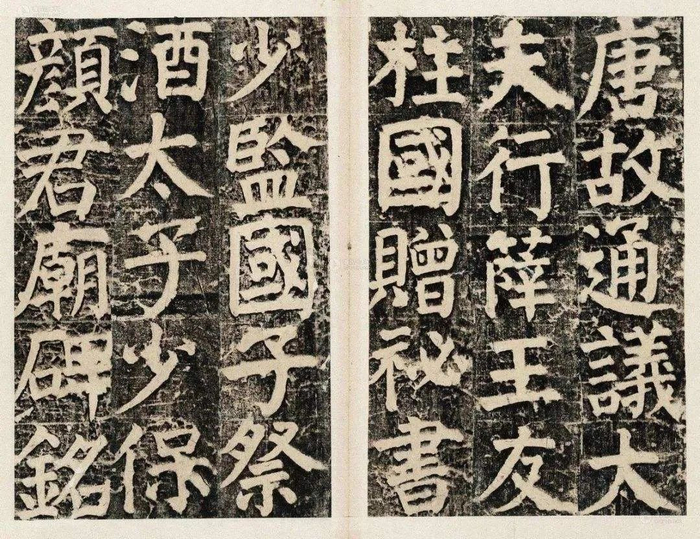 唐故通議大
夫行薛王友
柱國贈祕書
少監國子祭
酒太子少保
顔君廟碑銘